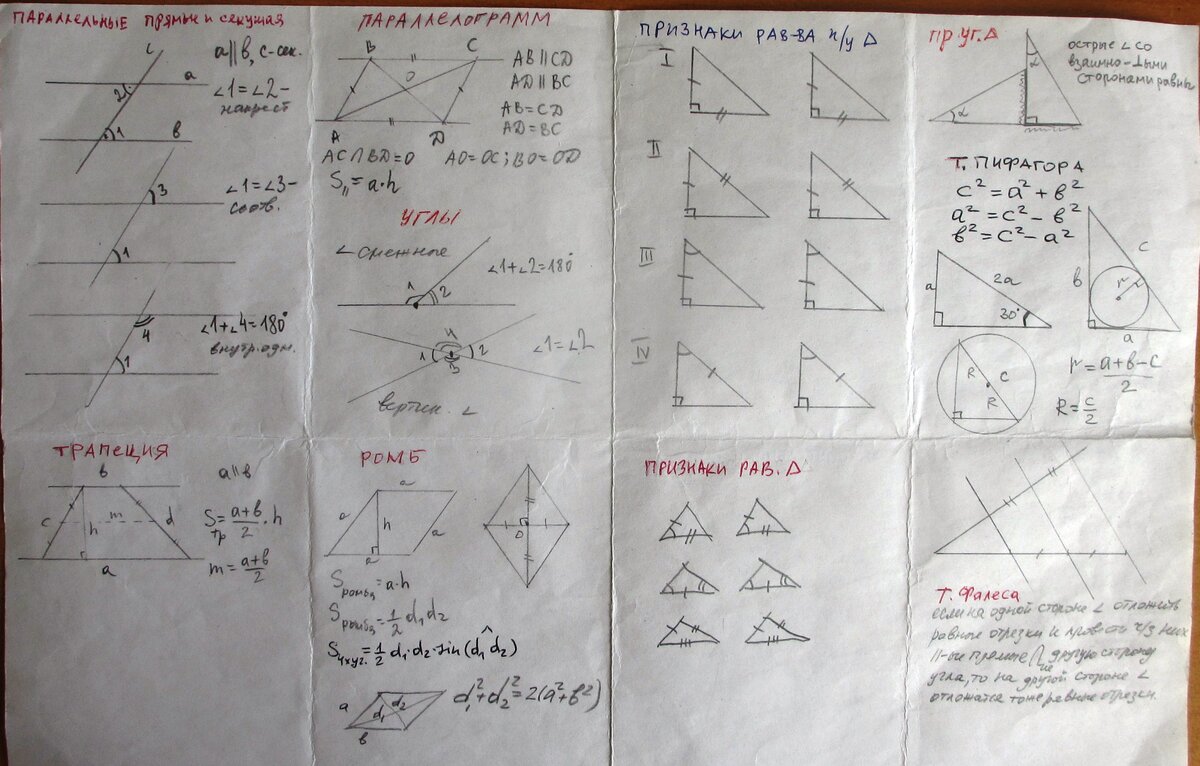 ПАРАЛЛЕЛЬНЫЕ ПРЯМЫЕ И СЕКУЩАЯ
c
a
2
1
b
a∥b, c-сек.
∠1=∠2-
накрест
3
1
∠1=∠3-
соотв.
4
1
∠1+∠4=180°
внутр. одн.
ПАРАЛЛЕЛОГРАММ
B
C
O
A
D
AB∥CD
AD∥BC
AB=CD
AD=BC
AC∩BD=O
AO=OC; BO=OD
S=a·h
УГЛЫ
∠ смежные
1
2
∠1+∠2=180°
4
1
2
3
∠1=∠2
вертик. ∠
ПРИЗНАКИ РАВ-ВА П/У Δ
I
II
III
IV
ПР.УГ.Δ
α
α
острые ∠ со
взаимно-⊥ыми
сторонами равны
Т. ПИФАГОРА
c²=a²+b²
a²=c²-b²
b²=c²-a²
a
2a
30°
b
c
r
a
R
C
R
r=(a+b-c)/2
R=c/2
ТРАПЕЦИЯ
b
c
h
m
d
a
a∥b
Sтр=(a+b)/2·h
m=(a+b)/2
РОМБ
a
a
h
a
a
O
Sромба=a·h
Sромба=1/2 d₁d₂
S4хуг.=1/2 d₁·d₂·sin(d₁^d₂)
a
d₁
d₂
b
d₁²+d₂²=2(a²+b²)
ПРИЗНАКИ РАВ. Δ
Т. Фалеса
если на одной стороне ∠ отложить
равные отрезки и провести ч/з них
∥-ые прямые ∩-ие другую сторону
угла, то на другой стороне ∠
отложатся тоже равные отрезки.